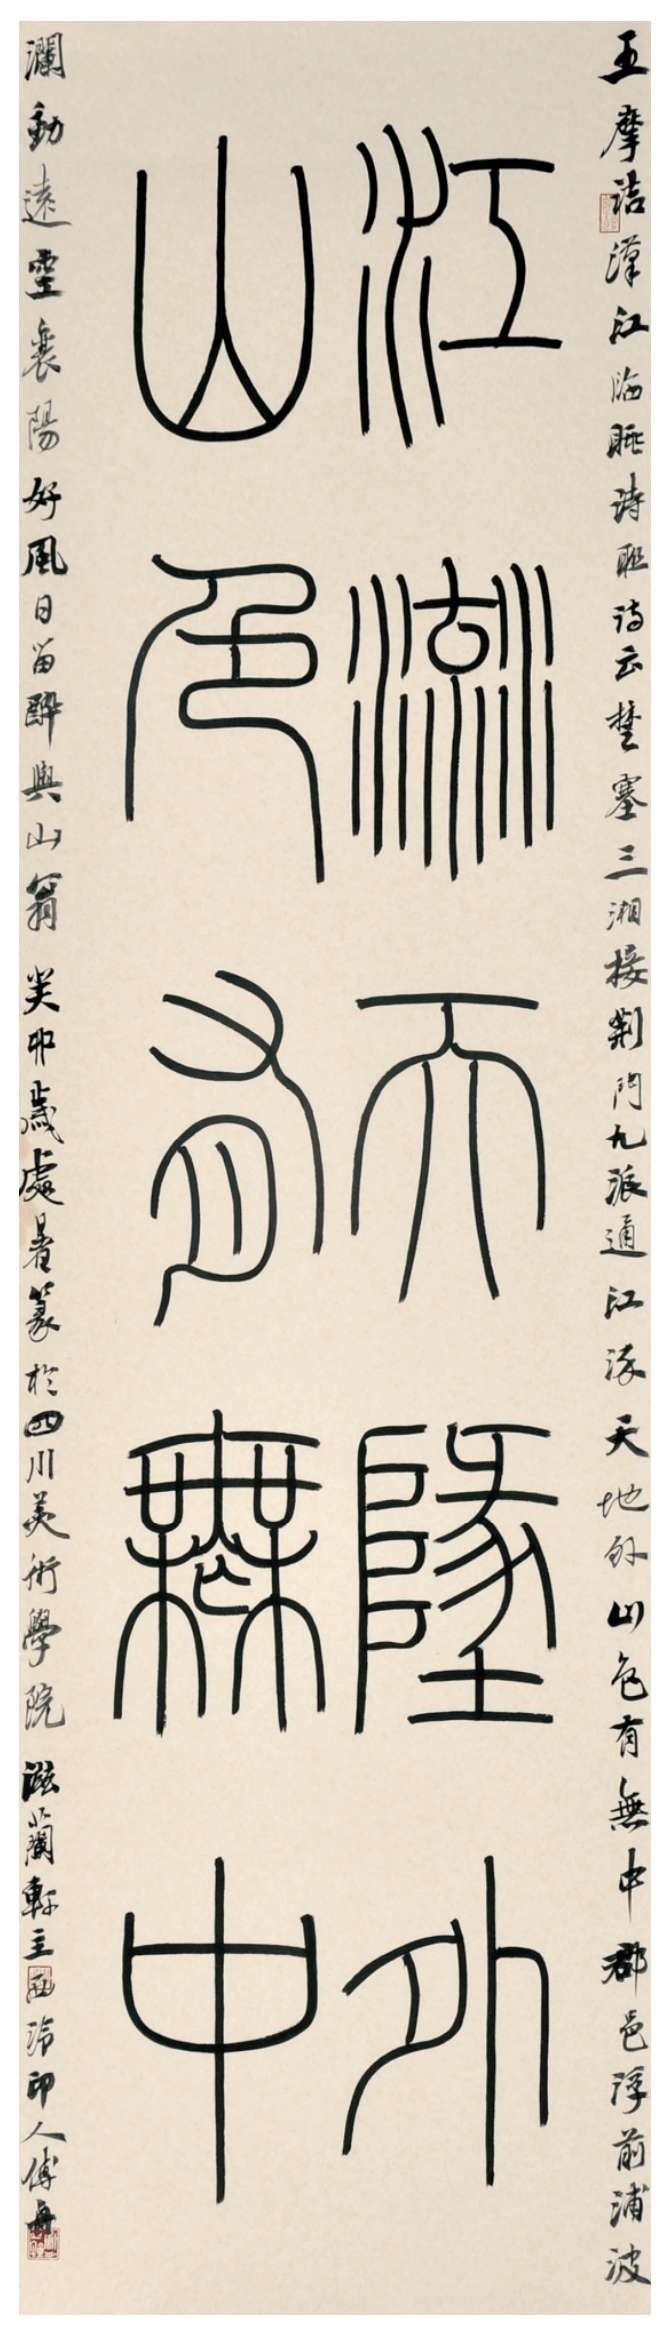 王摩詰漢江臨眺詩聯詩云楚塞三湘接荊門九派通江流天地外山色有無中郡邑浮前浦波
江流天墬外
山色有無中
瀾動遠空襄陽好風日留醉與山翁癸卯歲處暑篆於四川美術學院滋蘭軒主西泠印人傅舟